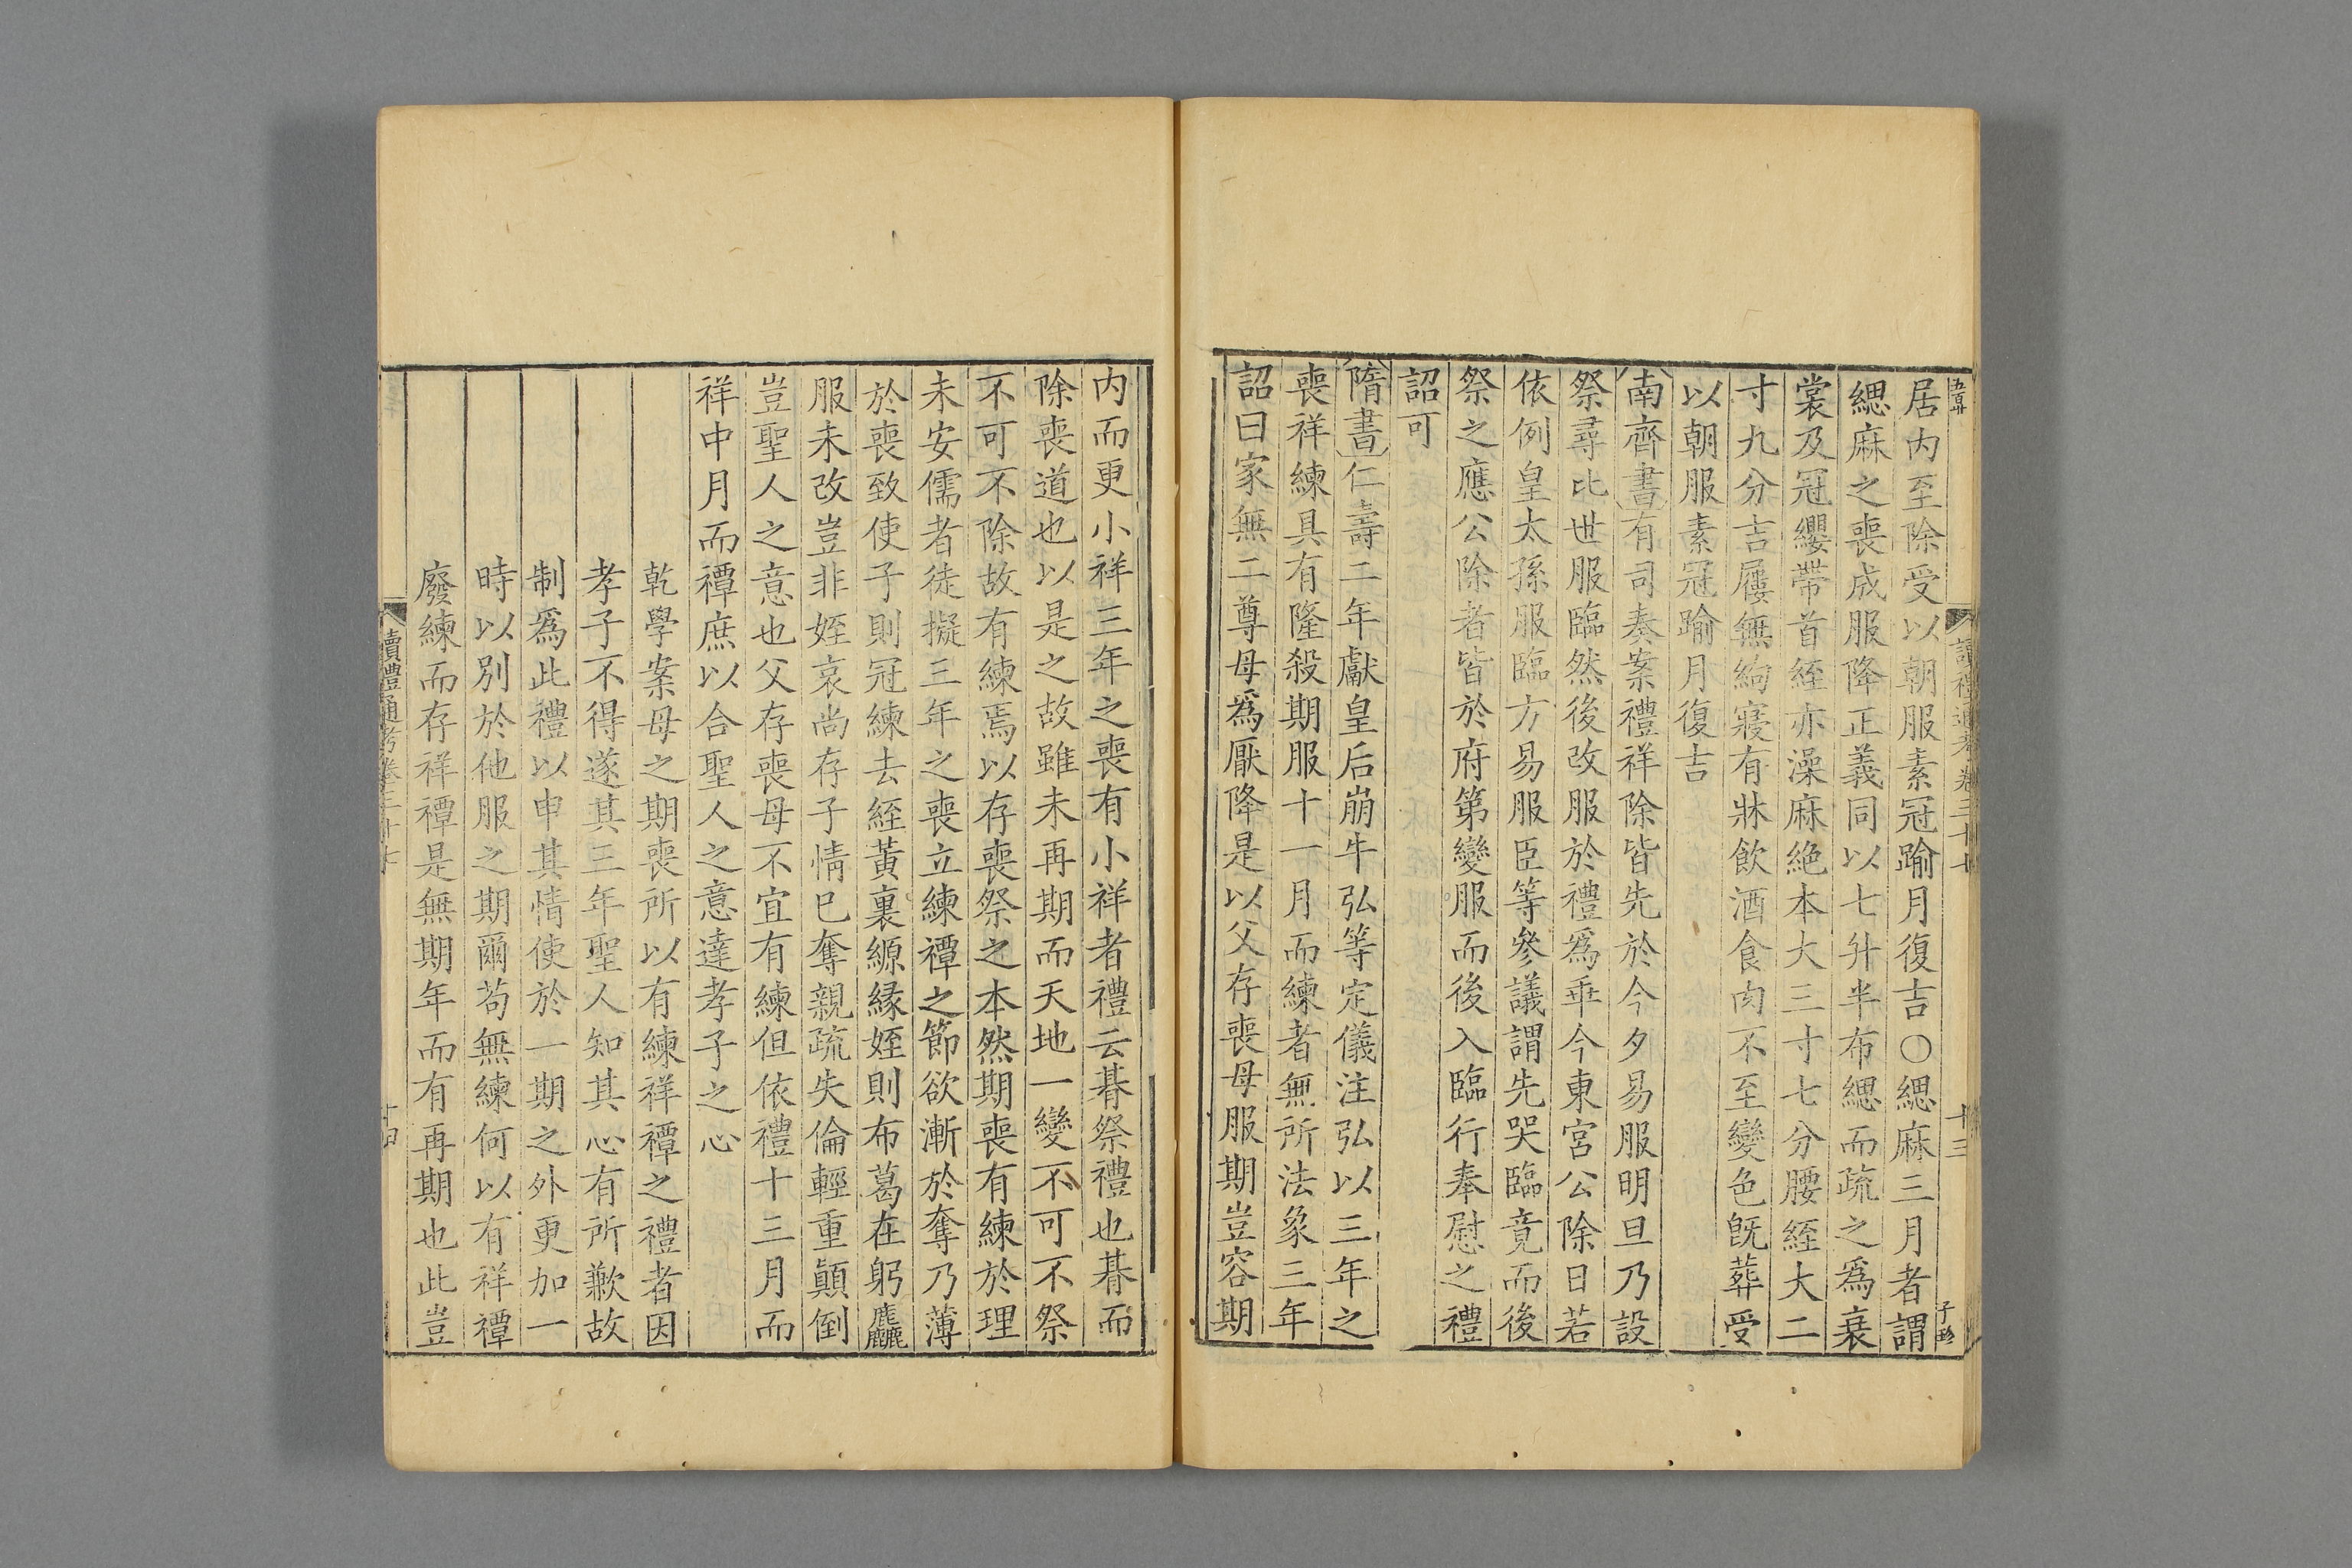 讀禮通考卷三十七
十三
居內至除受以朝服素冠踰月復吉○緦麻三月者謂
緦麻之喪成服降正義同以七升半布緦而疏之爲衰
裳及冠纓帶首絰亦澡麻絶本大三寸七分腰絰大二
寸九分吉屨無絇寢有牀飲酒食肉不至變色旣葬受
以朝服素冠踰月復吉
南齊書有司奏案禮祥除皆先於今夕易服明旦乃設
祭尋比世服臨然後改服於禮爲乖今東宮公除日若
依例皇太孫服臨方易服臣等參議謂先哭臨竟而後
祭之應公除者皆於府第變服而後入臨行奉慰之禮
詔可
隋書仁壽二年獻皇后崩牛弘等定儀注弘以三年之
喪祥練具有隆殺期服十一月而練者無所法象三年
詔曰家無二尊母爲厭降是以父存喪母服期豈容期
內而更小祥三年之喪有小祥者禮云朞祭禮也朞而
除喪道也以是之故雖未再期而天地一變不可不祭
不可不除故有練焉以存喪祭之本然期喪有練於理
未安儒者徒擬三年之喪立練禫之節欲漸於奪乃薄
於喪致使子則冠練去絰黃裏縓緣姪則布葛在躬麤
服未改豈非姪哀尚存子情已奪親疏失倫輕重顚倒
豈聖人之意也父存喪母不宜有練但依禮十三月而
祥中月而禫庶以合聖人之意達孝子之心
乾學案母之期喪所以有練祥禫之禮者因
孝子不得遂其三年聖人知其心有所歉故
制爲此禮以申其情使於一期之外更加一
時以別於他服之期爾茍無練何以有祥禫
廢練而存祥禫是無期年而有再期也此豈
讀禮通考卷三十七
十四